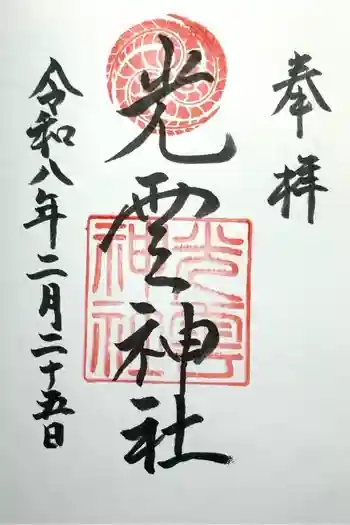 奉拝
光雲神社
令和八年二月二十五日
光雲神社